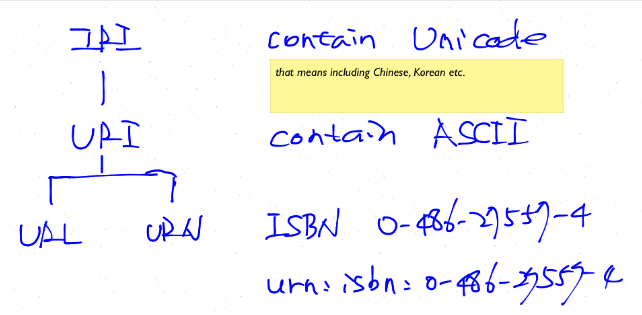 IRI contain Unicode
that means including Chinese, Korean etc.
URI contain ASCII
URL URN ISBN 0-486-27557-4
urn:isbn:0-486-27557-4